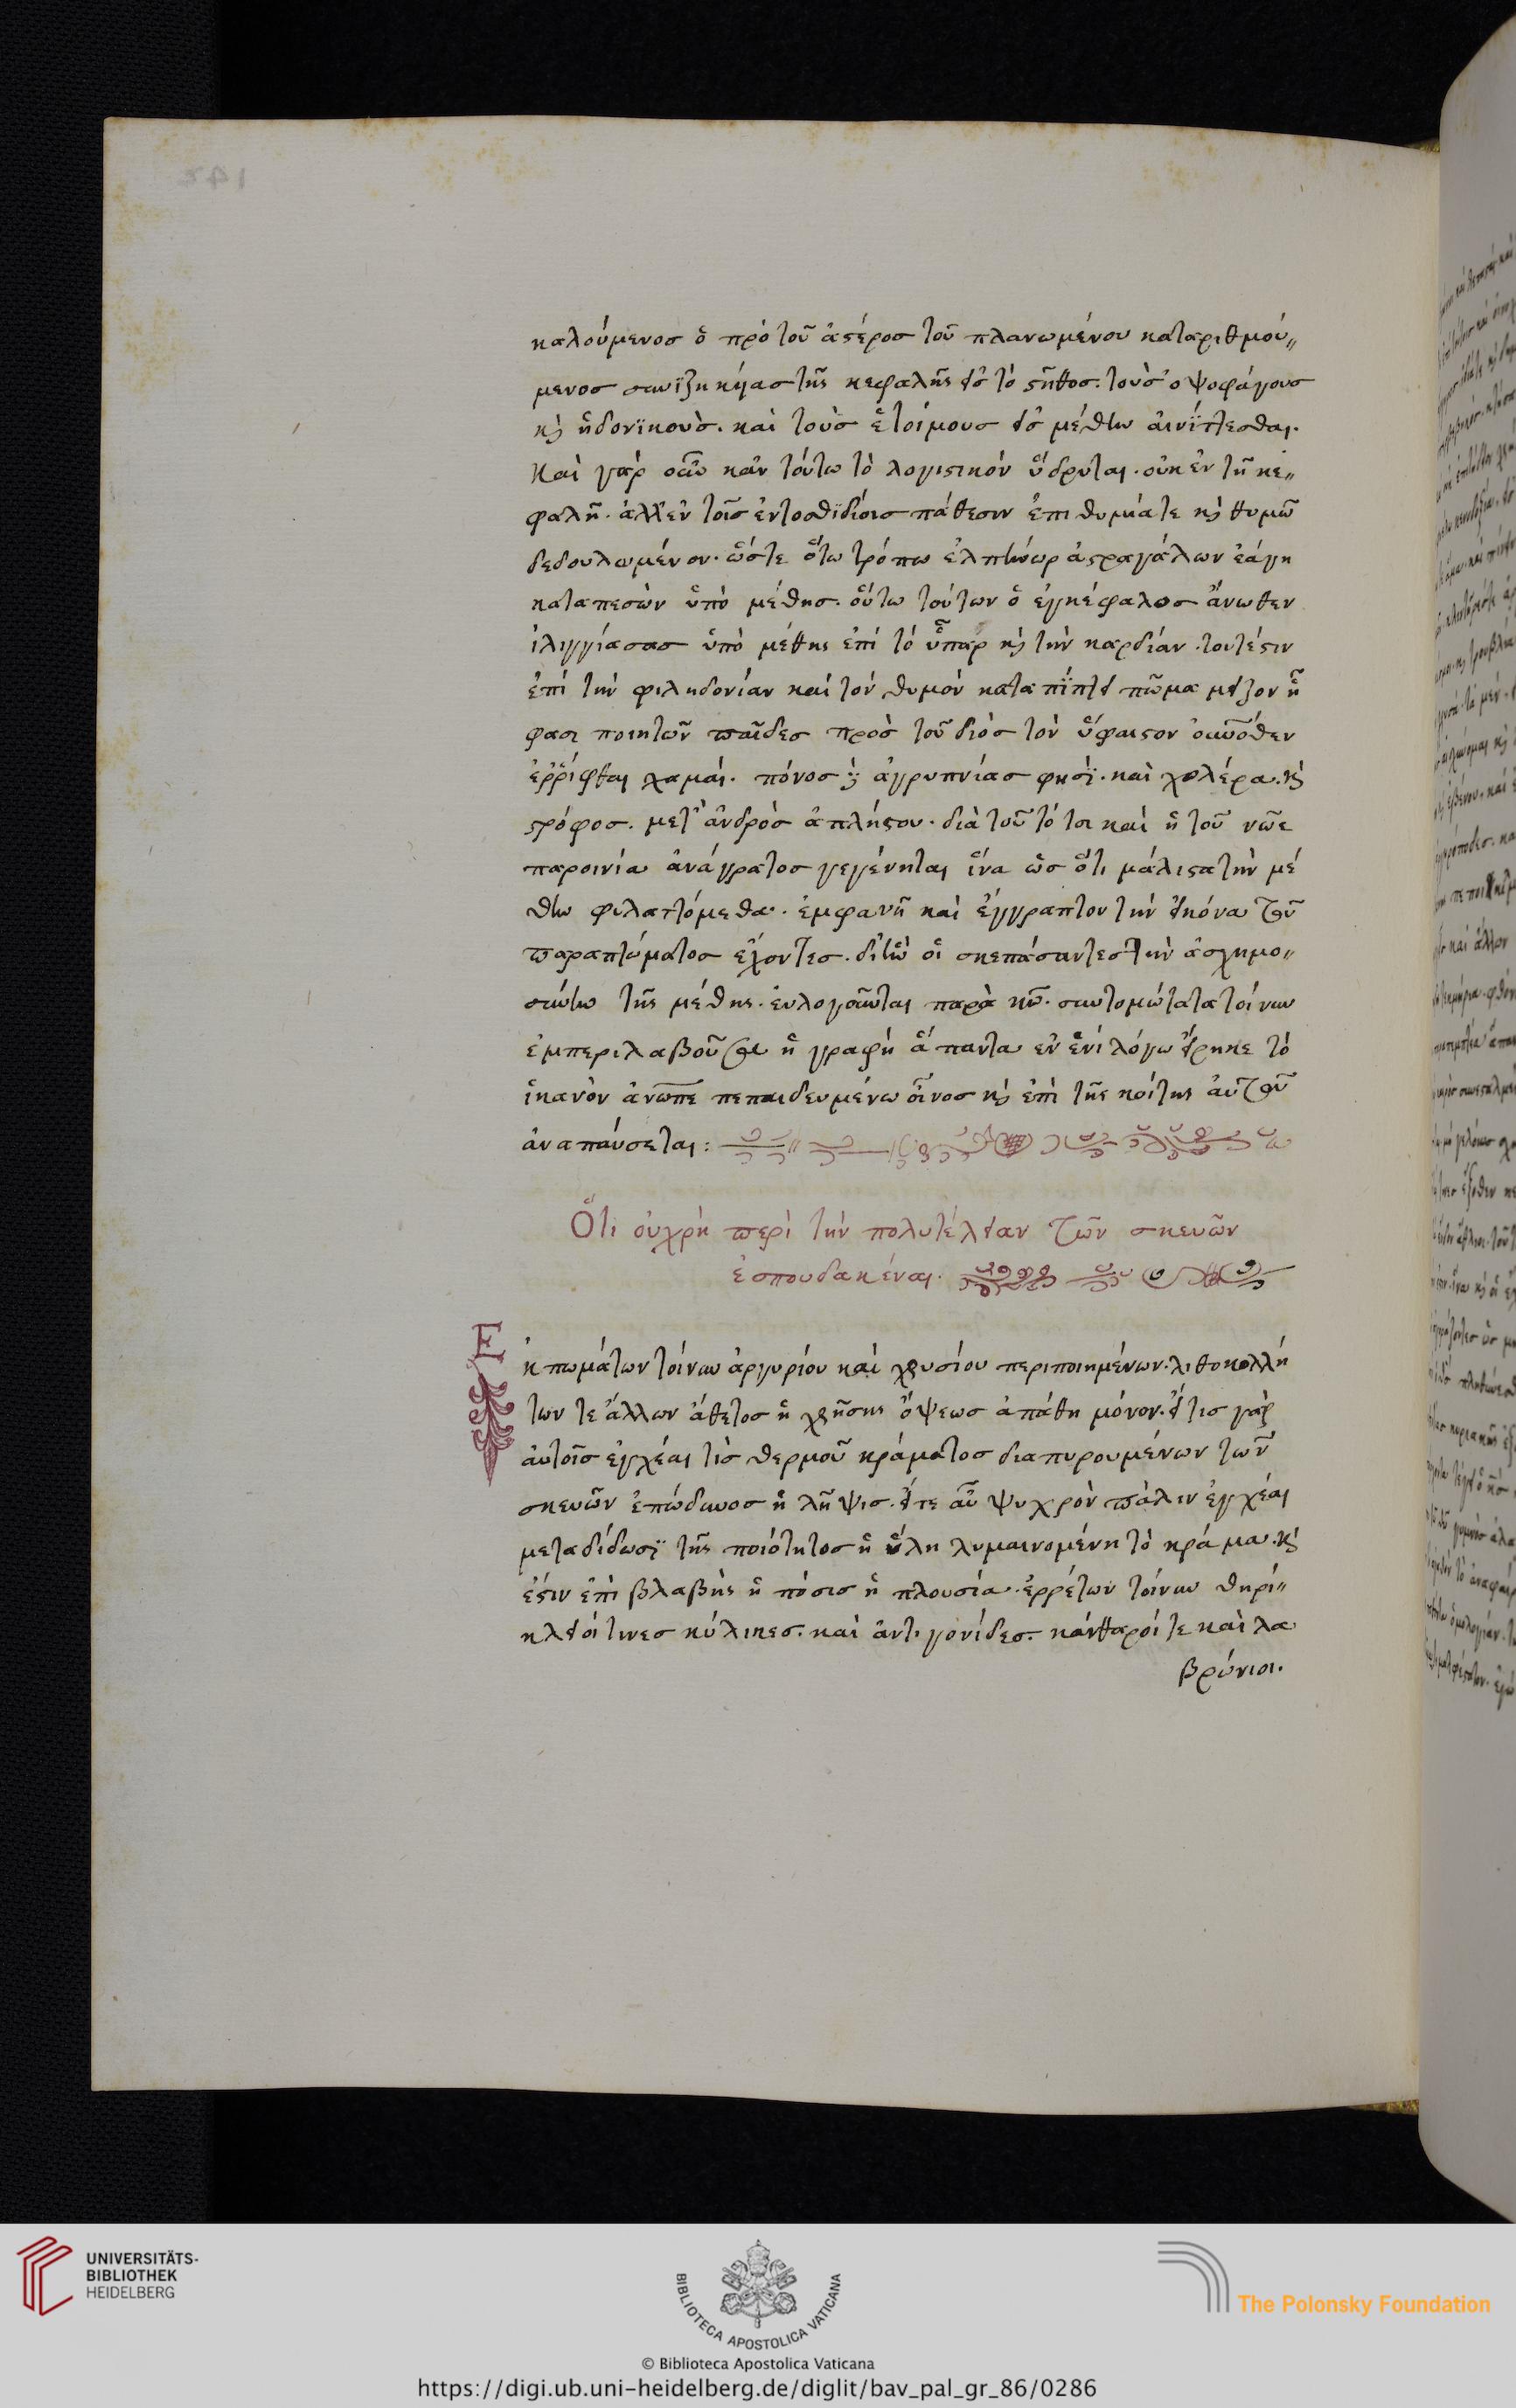 καλούμενοσ ὁ πρὸ τοῦ ἀστέροσ τοῦ πλανωμένου καταριθμού〃
μενοσ συνϊζηκήασ τῆς κεφαλῆς εἰσ τὸ στῆθοσ. τοὺσ ὀψοφάγουσ
κὶ ἡδονϊκοὺσ. καὶ τοὺσ ἑτοίμουσ εἰσ μέθην αἰνίττεσθαι.
Καὶ γὰρ οὖν κἀν τούτω τὸ λογιστικὸν ὕδρυται. οὐκ ἐν τῆ κε〃
φαλῆ. ἀλλ' ἐν τοῖσ ἐντοσθϊδίοισ πάθεσιν ἐπιθυμία τε κὶ θυμῶ
δεδουλωμένον. ὥστε ὅτω τρόπω ἐλπήνωρ ἀστραγάλων ἐάγη
καταπεσὼν ὑπὸ μέθησ. οὕτω τούτων ὁ ἐγκέφαλοσ ἄνωθεν
ἰλιγγίασασ ὑπὸ μέθης ἐπὶ τὸ ὗπαρ κὶ τὴν καρδίαν. τουτέστιν
ἐπὶ τὴν φιληδονίαν καὶ τὸν θυμὸν καταπϊπτει πτῶμα μεῖζον ἢ
φασι ποιητῶν παῖδεσ πρὸσ τοῦ διὸσ τὸν ὕφαιστον οὐρανόθεν
ἐρρίφθαι χαμαί. πόνοσ ἀγρυπνίασ φησϊ. καὶ χολέρα. κὶ
στρόφοσ. μετ' ἀνδρὸσ ἀπλήστου. διὰ τοῦτό τοι καὶ ἡ τοῦ νῶε
παροινία ἀνάγρατοσ γεγένηται ἵνα ὡσ ὅτι μάλιστα τὴν μέ
θην φυλαττόμεθα. ἐμφανῆ καὶ ἔγγραπτον τὴν εἰκόνα τοῦ
παραπτώματοσ ἔχοντεσ. δι' ἣν οἱ σκεπάσαντεσ τὴν ἀσχημο〃
σύνην τῆς μέθης. εὐλογοῦνται παρὰ κ̅υ̅. συντομώτατα τοίνυν
ἐμπεριλαβοῦσα ἡ γραφὴ ἅπαντα ἐν ἑνὶ λόγω εἴρηκε τὸ
ἱκανὸν ἀν̅ω̅π̅ε̅ πεπαιδευμένω οἶνοσ κὶ ἐπὶ τῆς κοίτης αὐτοῦ
ἀναπαύσεται:
Ὅτι οὐχρὴ περὶ τὴν πολυτέλειαν τῶν σκευῶν
ἐσπουδακέναι.
Ἐκπωμάτων τοίνυν ἀργυρίου καὶ χρυσίου περιποιημένων. λιθοκολλή
των τε ἄλλων ἄθετοσ ἡ χρῆσης ὄψεωσ ἀπάθη μόνον. εἴτισ γὰρ
αὐτοῖσ ἐγχέαι τὶσ θερμοῦ κράματοσ διαπυρουμένων τῶν
σκευῶν ἐπώδυνοσ ἡ λῆψισ. εἴτε αὖ ψυχρὸν πάλιν ἐγχέαι
μεταδίδωσϊ τῆς ποιότητοσ ἡ ὕλη λυμαινομένη τὸ κράμα. κὶ
ἐστιν ἐπὶ βλαβὴς ἡ πόσισ ἡ πλουσία. ἐρρέτων τοίνυν θηρί〃
κλειοί τινεσ κύλικεσ. καὶ ἀντιγονίδεσ. κάνθαροί τε καὶ λα
βρώνιοι.
UNIVERSITÄTS-
BIBLIOTHEK
HEIDELBERG
BIBLIOTECA APOSTOLICA VATICANA
The Polonsky Foundation
© Biblioteca Apostolica Vaticana
https://digi.ub.uni-heidelberg.de/diglit/bav_pal_gr_86/0286